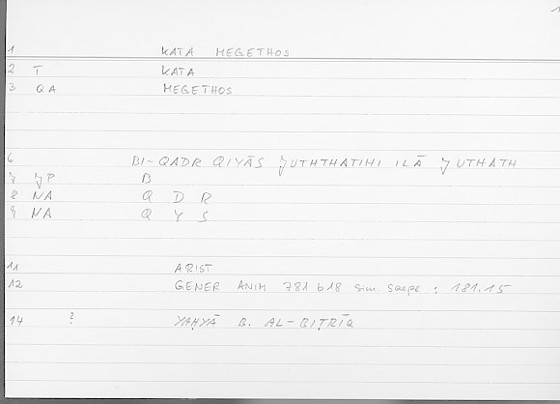 1
1 KATA MEGETHOS
2 T KATA
3 QA MEGETHOS
6 BI-QADR QIYĀS JUTHTHATIHI ILĀ JUTHATH
7 JP B
8 NA Q D R
9 NA Q Y S
11 ARIST
12 GENER ANIM 781 b18 sim. saepe : 181.15
14 ? YAḤYĀ B. AL-BIṬRĪQ